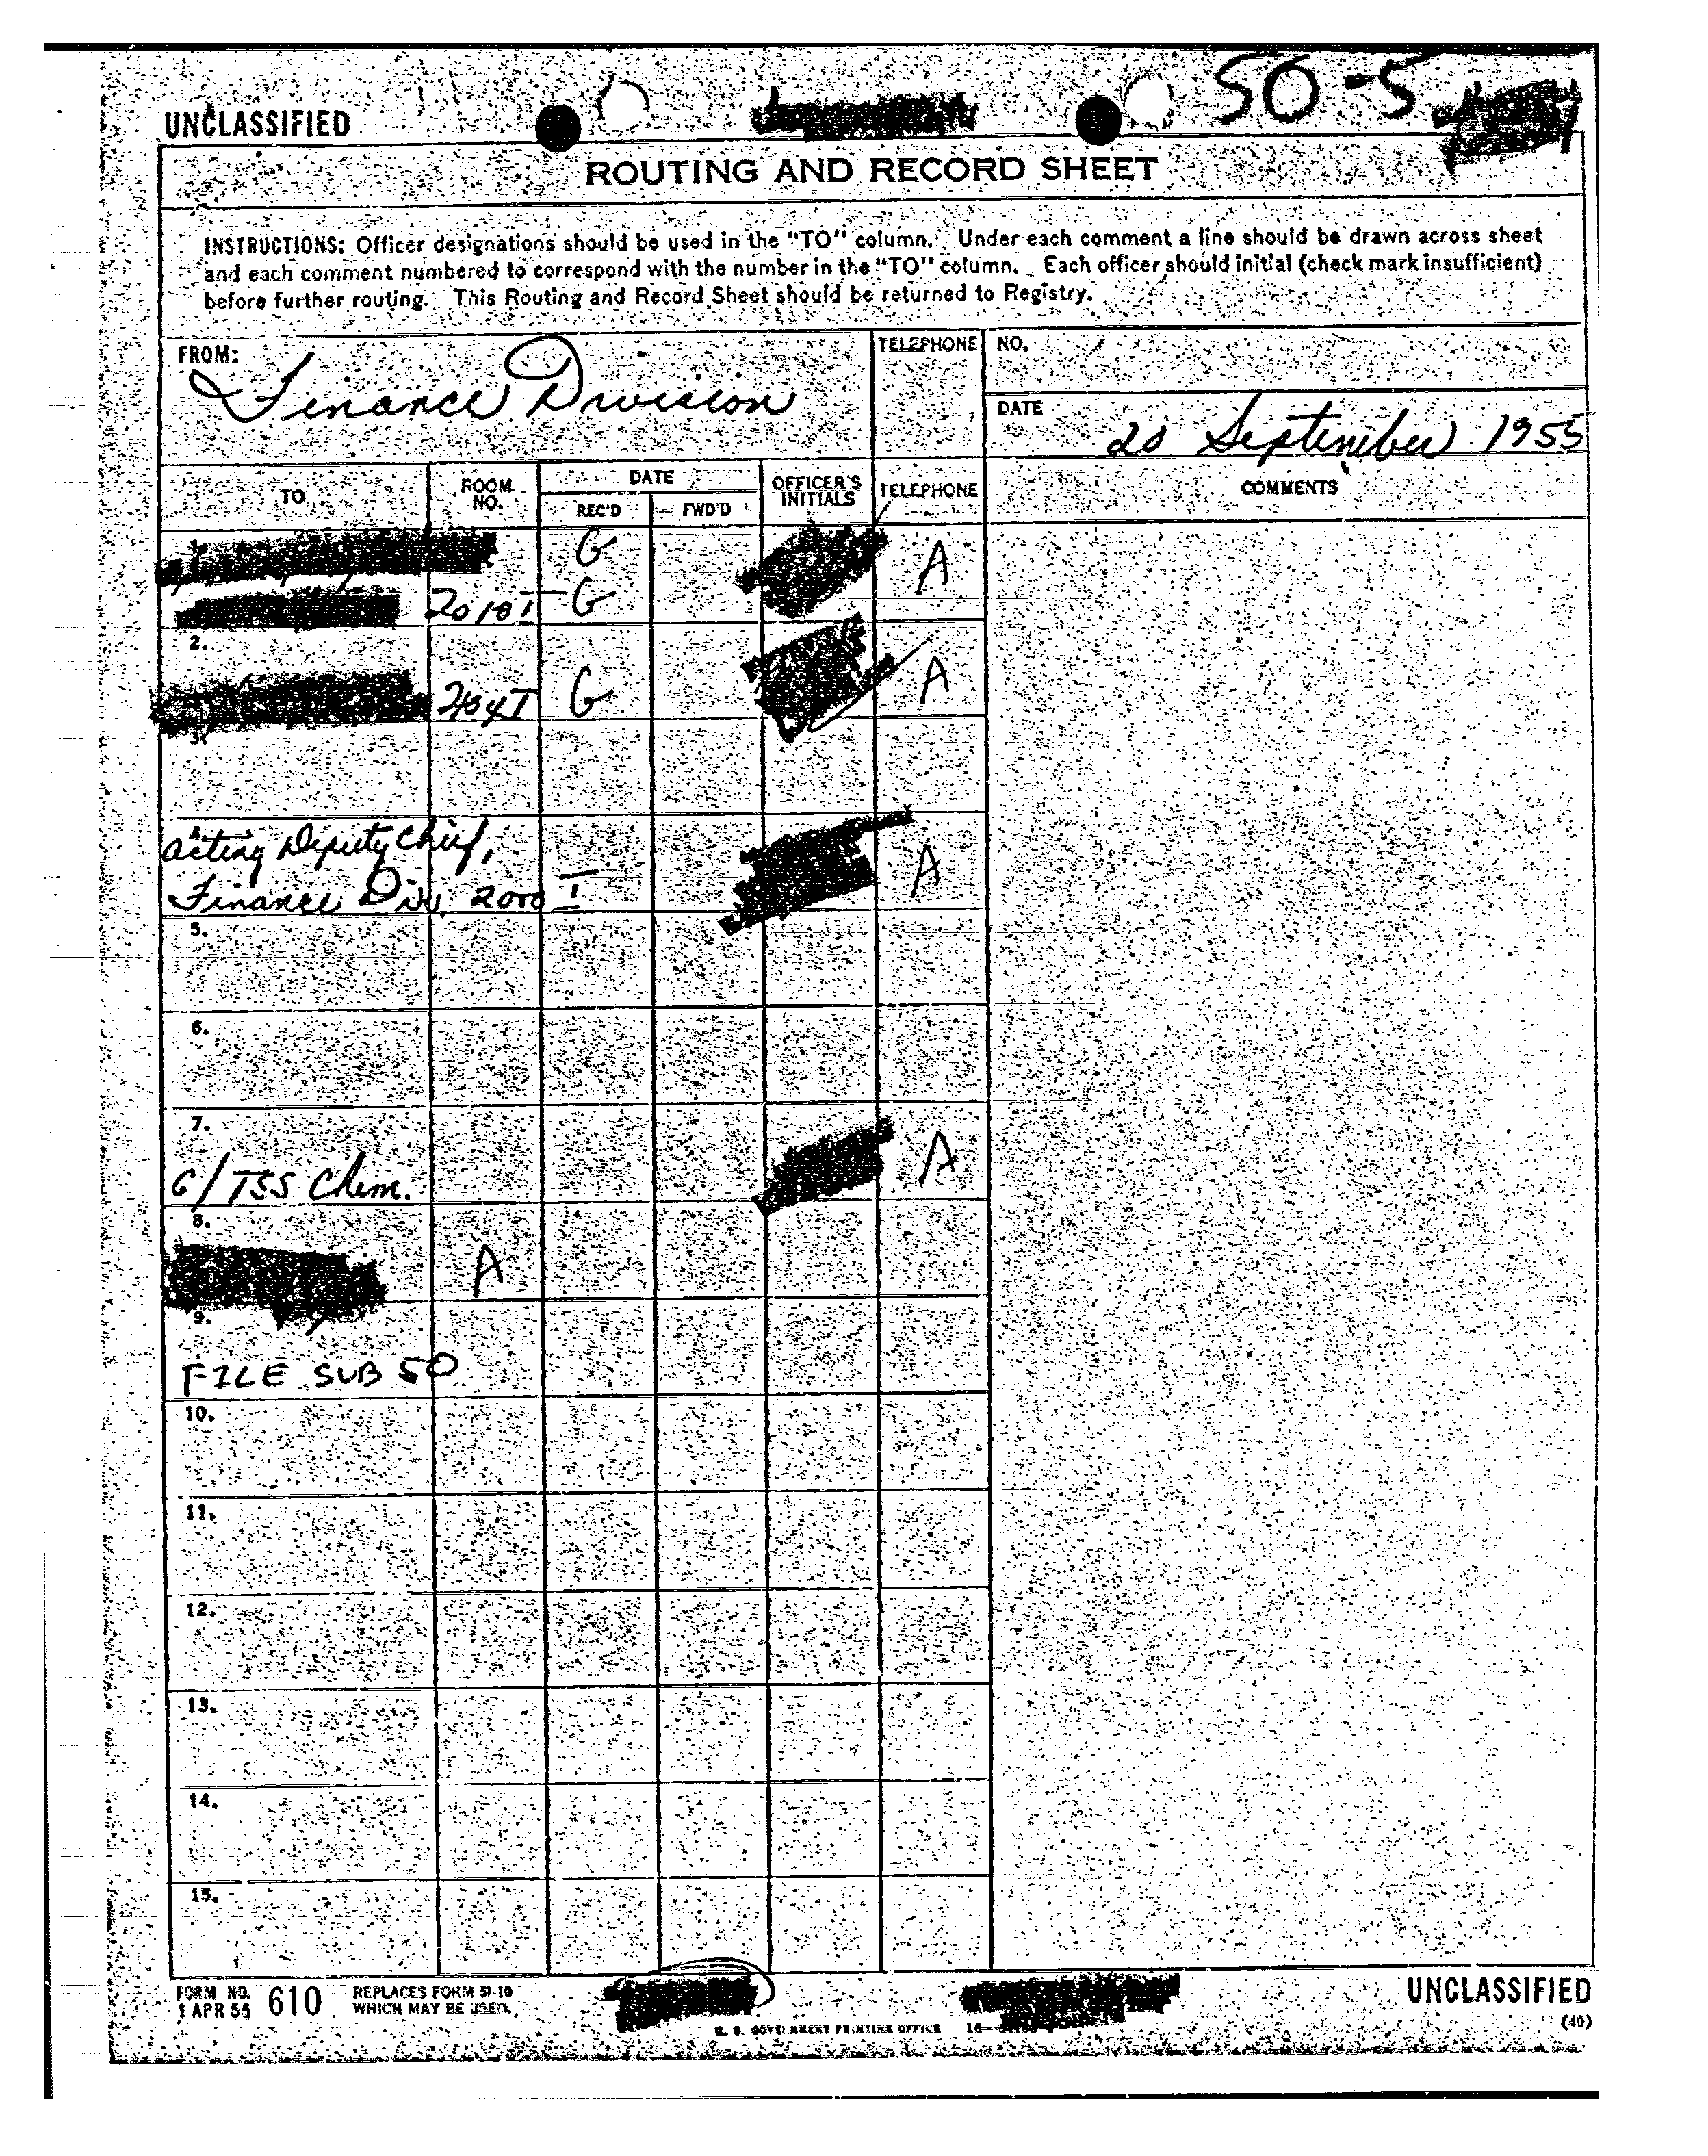 50-5
UNCLASSIFIED
ROUTING AND RECORD SHEET
INSTRUCTIONS: Officer designations should be used in the "TO" column. Under each comment a line should be drawn across sheet
and each comment numbered to correspond with the number in the "TO" column. Each officer should initial (check mark insufficient)
before further routing. This Routing and Record Sheet should be returned to Registry.
FROM: TELEPHONE NO.
Finance Division
DATE
20 September 1955
TO ROOM NO. DATE OFFICER'S INITIALS TELEPHONE COMMENTS
REC'D FWD'D
1.
G A
G
2.
G A
3.
4.
Acting Deputy Chief,
Finance Div. 2000 I A
5.
6.
7.
C/TSS Chem. A
8.
A
9.
FILE SUB 50
10.
11.
12.
13.
14.
15.
FORM NO. 610 REPLACES FORM 51-10
1 APR 55 WHICH MAY BE USED.
UNCLASSIFIED
U. S. GOVERNMENT PRINTING OFFICE
(40)